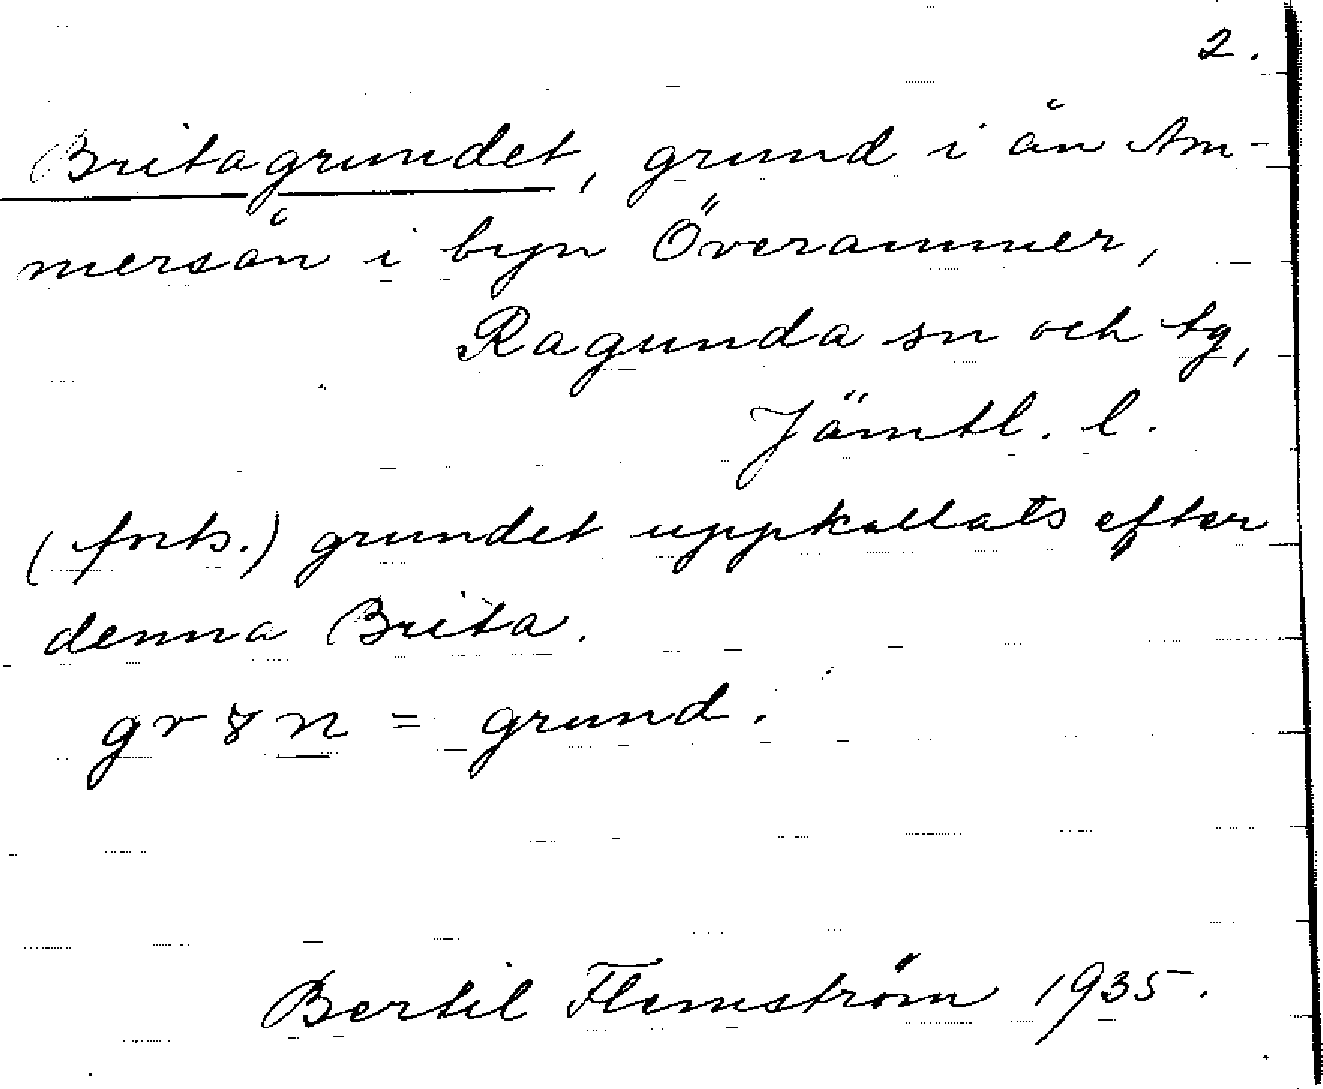 2.
Britagrundet, grund i ån Am-
mersån i byn Överammer,
Ragunda sn och tg,
Jämtl. l.
(forts.) grundet uppkallats efter
denna Brita.
= grund.
Bertil Flemström 1935.